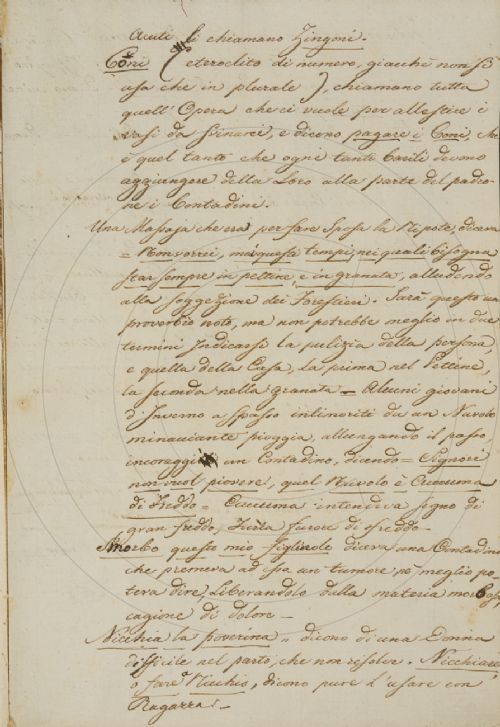 Acuti si chiamano Zingoni.
Coni (eteroclito di numero, giacchè non si
usa che in plurale), chiamano tutta
quell'Opera che ci vuole per allestire i
vasi da e dicono pagare i Coni, che
è quel tanto che ogni tanti barili devono
aggiungere della Loro alla parte del padro
ne i Contadini.
Una Massaja che era per fare Sposa la Nipote, diceva
= Non vorrei, in questi tempi, nei quali bisogna
star sempre in pettine, e in granata, alludendo
alla soggezione dei Forestieri. Sarà questo un
proverbio noto, ma non potrebbe meglio in due
termini Indicarsi la pulizia della persona,
e quella della Casa, la prima nel Pettine,
la seconda nella granata = Alcuni giovani
d'Inverno a spasso intimoriti da un Nuvolo
minacciante pioggia, allungando il passo
un Contadino, dicendo = Signori
non vuol piovere, quel Nuvolo è Cucuma
di Freddo = Cucuma intendeva segno di
gran freddo, furore di freddo.
Smorbo questo mio figliolo diceva una Contadina
che premeva ad esso un tumore, nè meglio po
teva dire, Liberandolo dalla materia morbosa
cagione di dolore =
Nicchia la poverina = dicono di una Donna
difficile nel parto, che non risolve. Nicchiare
o fare Nicchio, dicono pure l'usare con
Ragazza. =